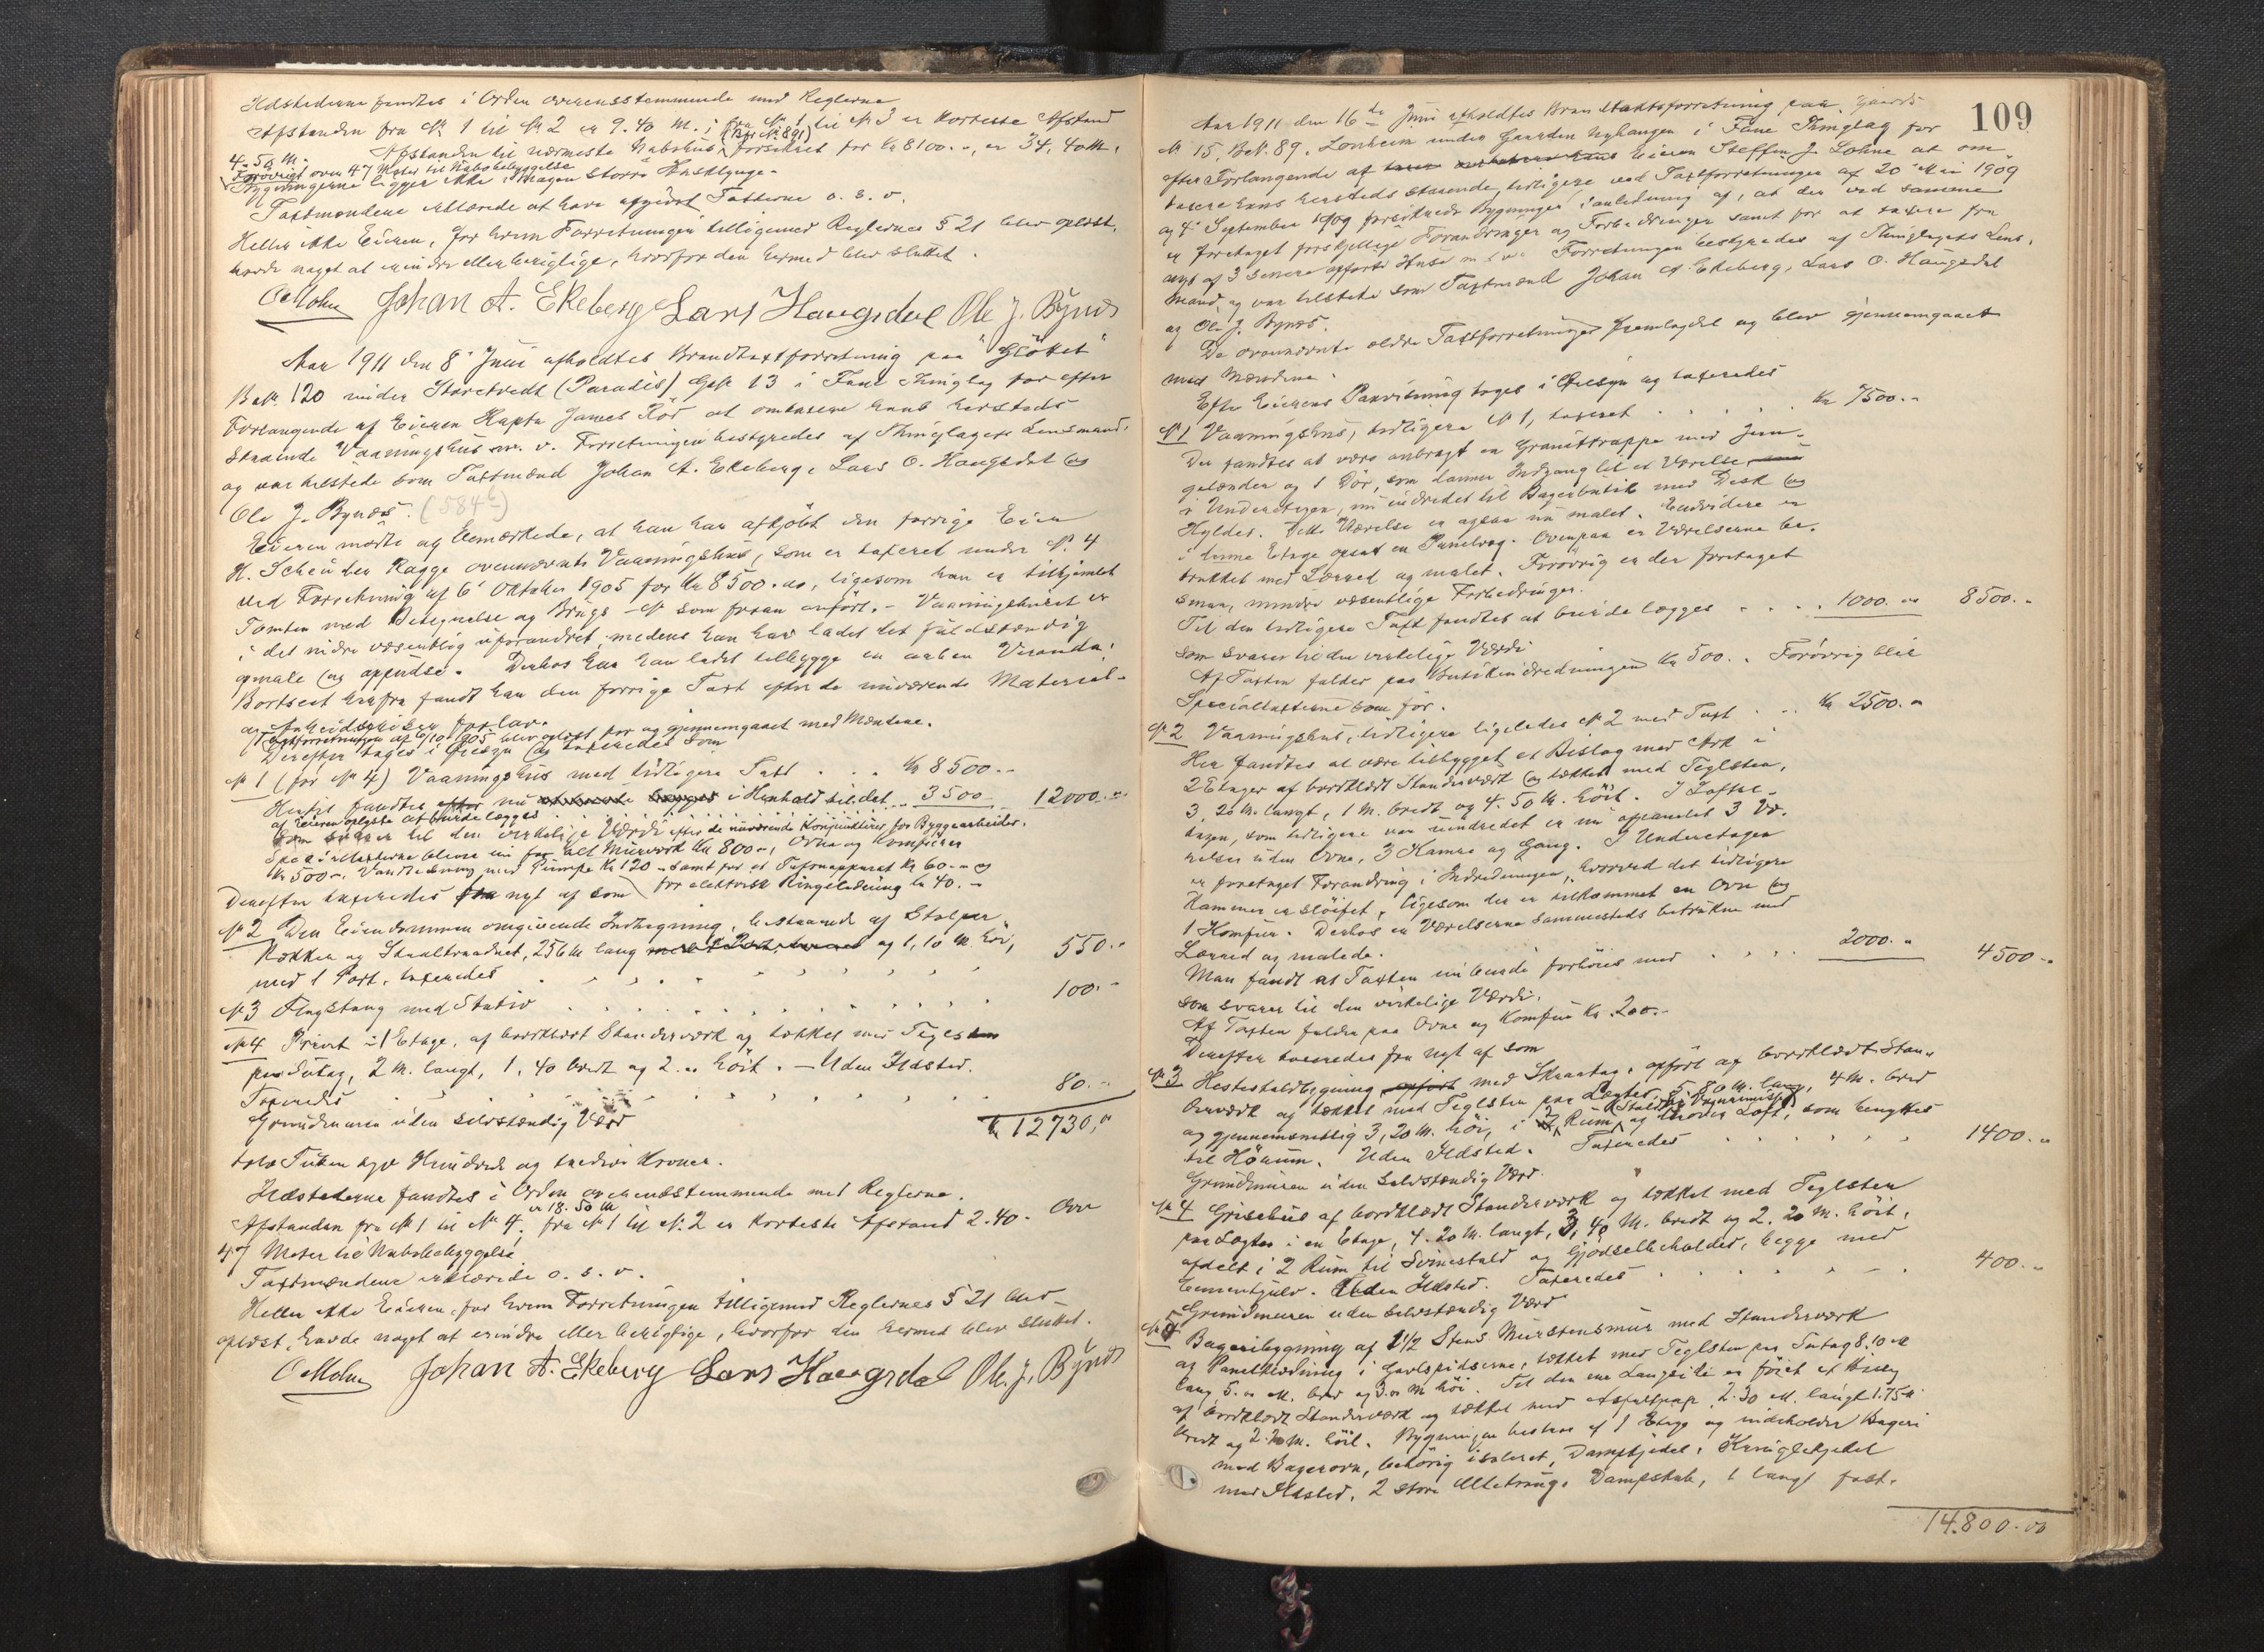 Ildstederne fandtes i Orden overensstemmende med Reglerne
Afstanden fra № 1 til № 2 er 9.40 M.; fra № 1 til № 3 er korteste Afstand
4.50 M. Afstanden til nærmeste Nabohus (Br № 891) forsikret for Kr 8100.-, er 34.40 M.
Forøvrigt over 47 Meter til Nabobebyggelse
Bygningerne ligger ikke i nogen større Husklynge.
Taxtmændene erklærede at have afgivet Taxterne o. s. v.
Heller ikke Eieren, for hvem Forretningen tilligemed Reglernes § 21 blev oplæst,
havde noget at erindre eller berigtige, hvorfor den hermed blev sluttet.
O Mohn Johan A. Ekeberg Lars Haugsdal Ole J. Bynes
Aar 1911 den 8' Juni afholdtes Brandtaxtforretning paa "Gløttet"
B.№ 120 under Storetvedt (Paradis) G.№ 13 i Fane Thinglag for efter
Forlangende af Eieren Kaptn James at omtaxere hans hersteds
staaende Vaaningshus m. v. Forretningen bestyredes af Thinglagets Lensmand,
og var tilstede som Taxtmænd Johan A. Ekeberg, Lars O. Haugsdal og
Ole J. Bynes. (584)
Eieren mødte og bemærkede, at han har afkjøbt den forrige Eier
H. Scheuder Ragge ovennævnte Vaaningshus, som er taxeret under № 4
ved Forretning af 6' Oktober 1905 for Kr 8500.00, ligesom han er tilskjømlet
Tomten med Betegnelse og Brugs-№ som foran anført. - Vaaningshuset er
i det indre væsentlig uforandret, medens han har ladet det fuldstændig
opmale og oppudse. Derhos har han ladet tilbygge en aaben Veranda.
Bortseet herfra fandt han den forrige Taxt efter de nuværende Material-
og Arbeidspriser for lav.
Taxtforretningen af 6/10 1905 blev oplæst for og gjennemgaaet med Mændene.
Derefter toges i Øiesyn og taxeredes som
№ 1 (før № 4) Vaaningshus med tidligere Taxt . . . Kr 8500.-
Hertil fandtes nu i Henhold til det . . 3500.- 12000.-
af Eieren oplyste at burde lægges
som svarer til den virkelige Værdi efter de nuværende Konjunkturer for Byggearbeider.
Specialtaxterne bleve nu for alt Murværk Kr 800.-, Ovne og Komfurer
Kr 500.-, Vandledning med Pumpe Kr 120.- samt for et Telefonapparat Kr 60.- og
for elektrisk Ringeledning Kr 40.-
Derefter taxeredes nyt af som
№ 2 Den Eiendommen omgivende Indhegning, bestaaende af Stolper,
Rækker og Staaltraadnet, 256 M lang og 1,10 M høi,
med 1 Port, taxeredes 550.-
№ 3 Flagstang med Stativ 100.-
№ 4 Privet i 1 Etage, af bordklædt Standerværk og tækket med Teglsten
paa Sutag, 2 M. langt, 1,40 bredt og 2.- høit. - Uden Ildsted.
Taxeredes 80.-
Grundmuren uden selvstændig Værd Kr 12730,-
tolv Tusen syv Hundrede og tredive Kroner.
Ildstederne fandtes i Orden overensstemmende med Reglerne.
Afstanden fra № 1 til № 4 er 18.50 M, fra № 1 til № 2 er korteste Afstand 2.40. Over
47 Meter til Nabobebyggelse
Taxtmændene erklærede o. s. v.
Heller ikke Eieren, for hvem Forretningen tilligemed Reglernes § 21 blev
oplæst, havde noget at erindre eller berigtige, hvorfor den hermed blev sluttet.
O Mohn Johan A. Ekeberg Lars Haugsdal Ole J. Bynes
109
Aar 1911 den 16de Juni afholdtes Brandtaxtforretning paa Gaards
№ 15, B.№ 89, Lonheim under Gaarden Nyhaugen i Fane Thinglag for
efter Forlangende af Eieren Steffen J. Lohne at om
taxere hans hersteds staaende, tidligere ved Taxtforretninger af 20' Mai 1909
og 4' September 1909 forsikrede Bygninger i anledning af, at der ved samme
er foretaget forskjellige Forandringer og Forbedringer samt for at taxere fra
nyt af 3 senere opførte Huse m. v. Forretningen bestyredes af Thinglagets Lens-
mand og var tilstede som Taxtmænd Johan A. Ekeberg, Lars O. Haugsdal
og Ole J. Bynes.
De ovennævnte ældre Taxtforretninger fremlagdes og blev gjennemgaaet
med Mændene.
Efter Eierens Paavisning toges i Øiesyn og taxeredes
№ 1 Vaaningshus, tidligere № 1, taxeret . . . . . Kr 7500.-
Der fandtes at være anbragt en Granittrappe med Jern-
gelænder og 1 Dør, som danner Indgang til et Værelse
i Underetagen, nu indredet til Bageributik med Disk og
Hylder. Dette Værelse er ogsaa nu malet. Endvidere er
i denne Etage opsat en Panelvæg. Ovenpaa er Værelserne be-
trukket med Lærred og malet. Forøvrig er der foretaget
smaa, mindre væsentlige Forbedringer.
Til den tidligere Taxt fandtes at burde lægges . . . . 1000.- 8500.-
som svarer til den virkelige Værdi
Af Taxten falder paa Butikindredningen Kr 500.- Forøvrig blir
Specialtaxterne som før.
№ 2 Vaaningshus, tidligere ligeledes № 2 med Taxt . . Kr 2500.-
Her fandtes at være tilbygget et Bislag med Ark i
2 Etager af bordklædt Standerværk og tækket med Teglsten,
3,20 M. langt, 1 M. bredt og 4.50 M. høit. I Lofte-
tagen, som tidligere var uindredet er nu oppanelet 3 Væ-
relser uden Ovne, 3 Kamre og Gang. I Underetagen
er foretaget Forandring i Indredningen, hvorved det tidligere
Kammer er sløifet, ligesom der er tilkommet en Ovn og
1 Komfur. Derhos er Værelserne sammesteds betrukne med
Lærred og malede.
Man fandt at Taxten nu burde forhøies med . . . . 2000.- 4500.-
som svarer til den virkelige Værdi.
Af Taxten falder paa Ovne og Komfur Kr. 200.-
Derefter taxeredes fra nyt af som
№ 3 Hestestaldbygning med Skraatag, opført af bordklædt Stan-
derværk og tækket med Teglsten paa Lægter, 5.80 M. lang, 4 M. bred
og gjennemsnitlig 3,20 M. høi, i 2 Rum (Stald og Vognremisse) og Loft, som benyttes
til Hørum. Uden Ildsted. Taxeredes 1400.-
Grundmuren uden selvstændig Værd.
№ 4 Grisehus af bordklædt Standerværk og tækket med Teglsten
paa Lægter i en Etage, 4.20 M. langt, 3,40 M. bredt og 2.20 M. høit,
afdelt i 2 Rum til Svinestald og Gjødselbeholder, begge med
Cementgulv. Uden Ildsted. Taxeredes 400.-
Grundmuren uden selvstændig Værd
№ 5 Bageribygning af 1 1/2 Stens Murstensmur med Standerværk
og Panelklædning i Gavlspidserne, tækket med Teglsten paa Sutag 8.10 M
lang 5.- M. bred og 3.- M høi. Til den ene Langside er føiet et Bislag
af bordklædt Standerværk og tækket med Asfaltpap, 2.30 M. langt 1.75 M
bredt og 2.20 M. høit. Bygningen bestaar af 1 Etage og indeholder Bageri
med Bagerovn, behørig isoleret, Dampkjedel, Kringlekjedel
med Ildsted, 2 store Eltetrug, Dampskab, 1 langt fast-
14.800.00